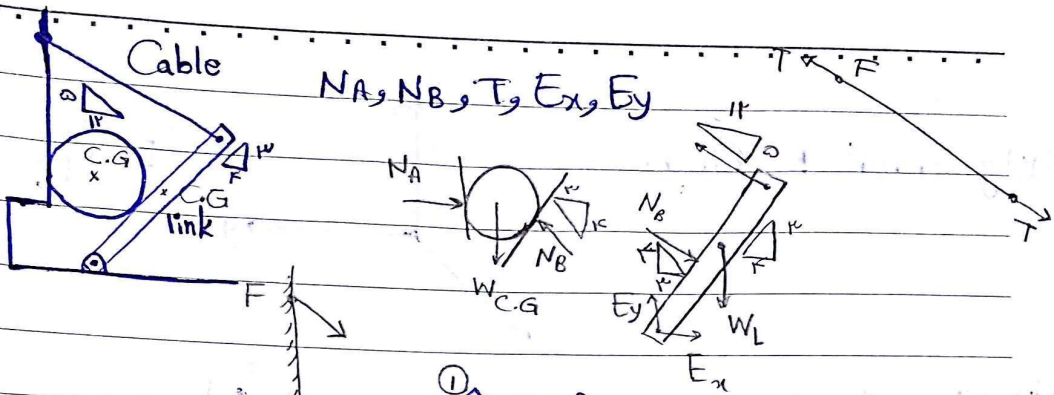 Cable
N_A, N_B, T, E_x, E_y
T F
۵
۱۲
C.G
۳
۴
C.G
link
N_A
۳
۴
N_B
W_C.G
۱۲
۵
N_B
۴
۳
۳
۴
E_y
W_L
E_x
T
F
①